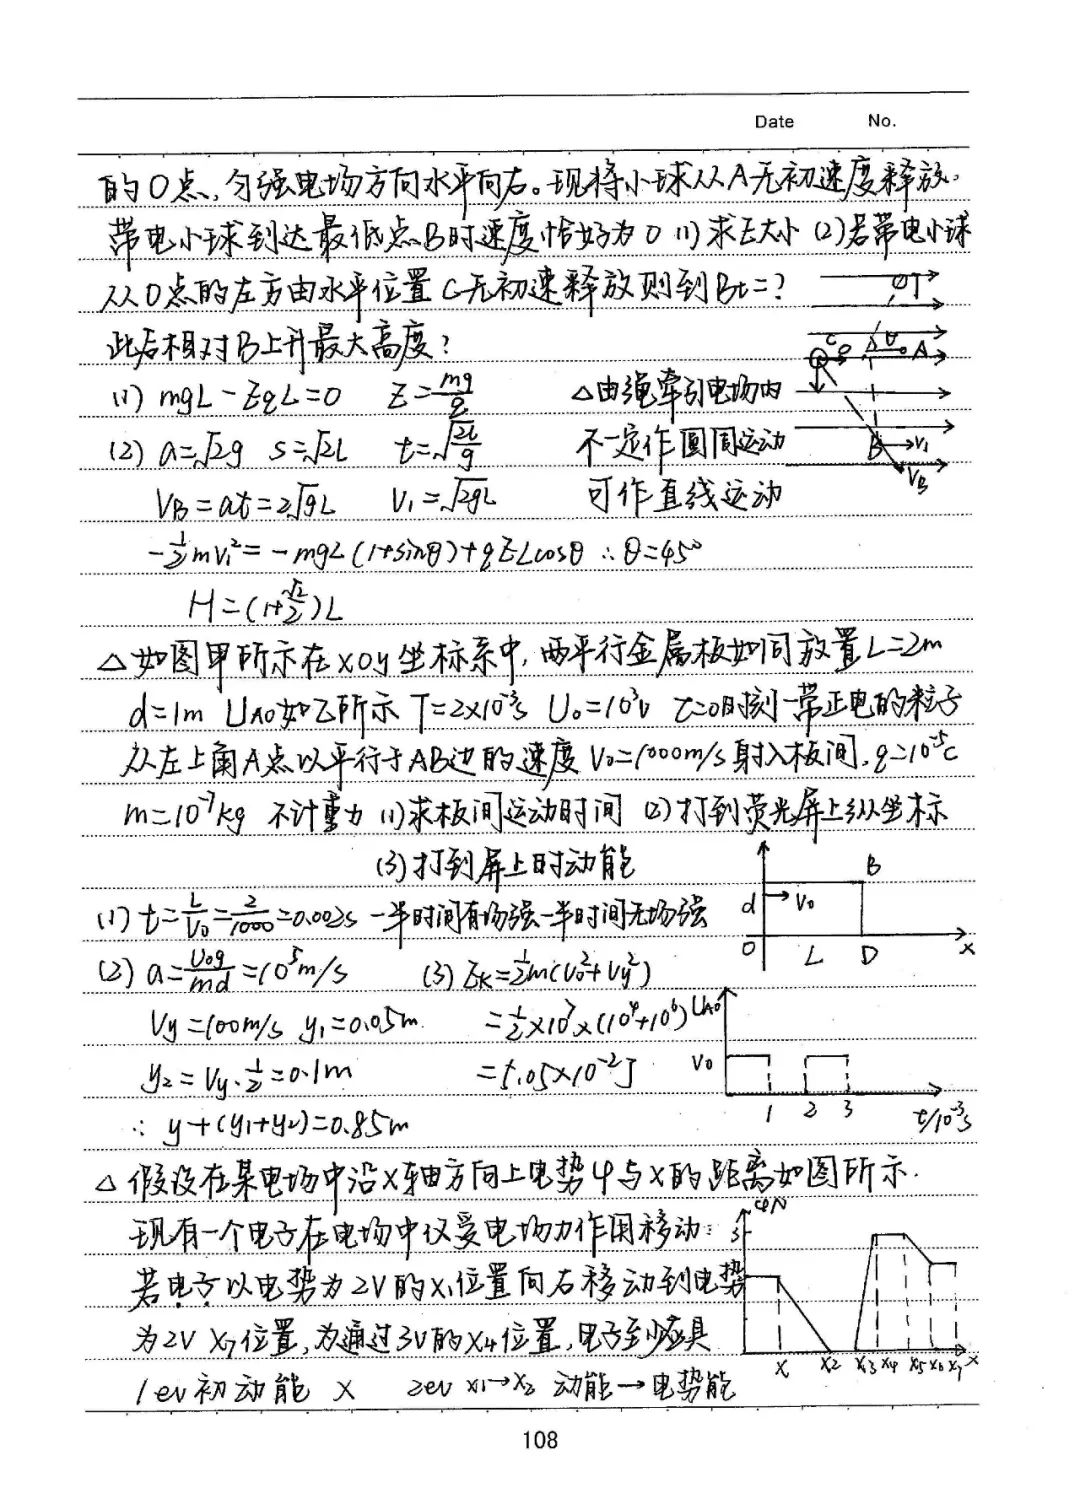 Date No.
的O点,匀强电场方向水平向右。现将小球从A无初速度释放.
带电小球到达最低点B时速度恰好为0 (1)求E大小 (2)若带电小球
从O点的左方由水平位置C无初速释放则到Bt=?
此后相对B上升最大高度?
(1) mgL-EqL=0 E=mg/q △由绳牵引电场内
(2) a=√2g s=√2L t=√(2L/g) 不一定作圆周运动
VB=at=2√gL V₁=√2gL 可作直线运动
-½mv₁²=-mgL(1+sinθ)+qELcosθ ∴θ=45°
H=(1+√2/2)L
C O θ A
B V₁
VB
△如图甲所示在xoy坐标系中,两平行金属板如同放置L=2m
d=1m UAO如乙所示 T=2×10⁻³s U₀=10³v t=0时刻一带正电的粒子
从左上角A点以平行于AB边的速度V₀=1000m/s射入板间.q=10⁻⁵C
m=10⁻⁷kg 不计重力 (1)求板间运动时间 (2)打到荧光屏上纵坐标
(3)打到屏上时动能
(1) t=L/V₀=2/1000=0.002s 一半时间有场强一半时间无场强
(2) a=U₀q/md=10⁵m/s (3) Ek=½m(V₀²+Vy²)
Vy=100m/s y₁=0.05m =½×10⁷×(10⁴+10⁶)
y₂=Vy·½=0.1m =5.05×10⁻²J
∴ y+(y₁+y₂)=0.85m
B
d V₀
O L D x
UAO
V₀
1 2 3 t/10⁻³s
△ 假设在某电场中沿x轴方向上电势φ与x的距离如图所示.
现有一个电子在电场中仅受电场力作用移动:
若电子以电势为2V的x₁位置向右移动到电势
为2V x₇位置,为通过3V的x₄位置,电子至少应具
1ev初动能 × 2ev x₁→x₂ 动能→电势能
φ/V
3
x₁ x₂ x₃ x₄ x₅ x₆ x₇ x
108